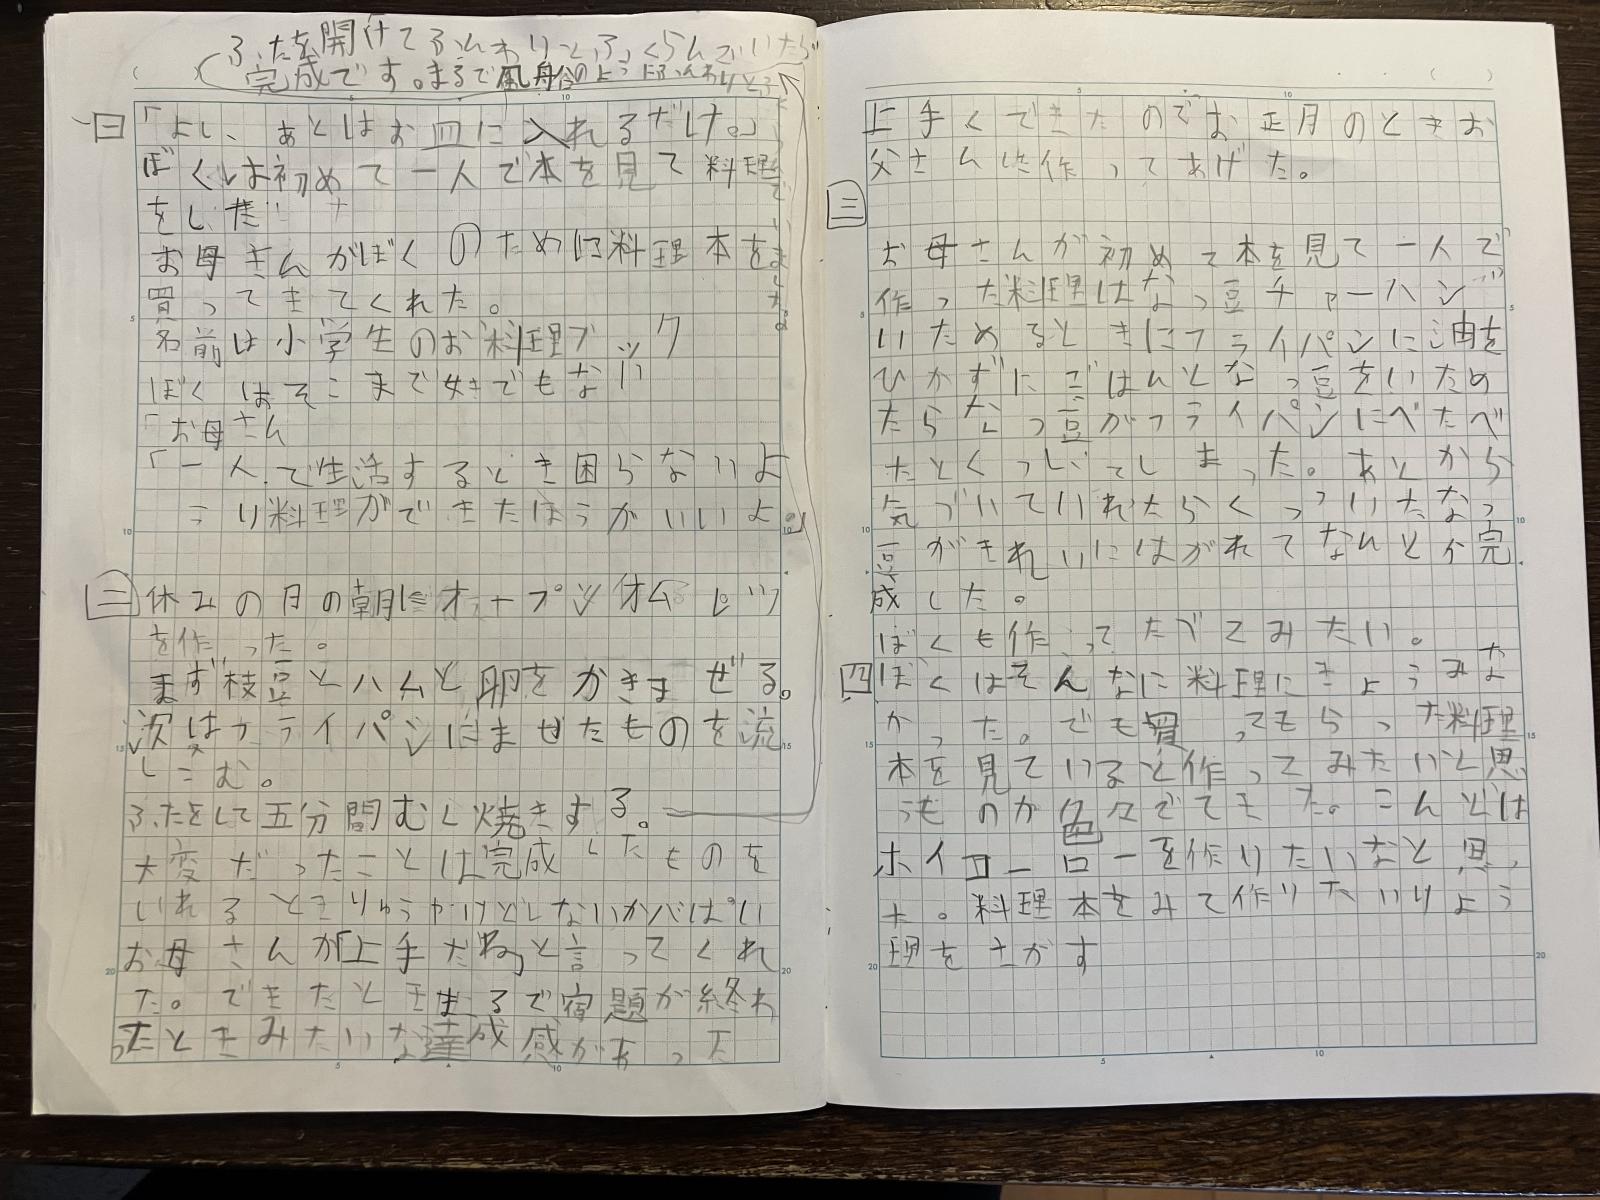 ふたを開けてふんわりとふくらんでいたら
完成です。まるで風船のようにふんわりとふ
くらんでいました。
一
「よし、あとはお皿に入れるだけ。」
ぼくは初めて一人で本を見て料理
をした
お母さんがぼくのために料理本を
買ってきてくれた。
名前は小学生のお料理ブック
ぼくはそこまで好きでもない
「お母さん
「一人で生活するとき困らないよ
うり料理ができたほうがいいよ。」
二
休みの日の朝にオープンオムレツ
を作った。
まず枝豆とハムと卵をかきまぜる。
次はフライパンにませたものを流
しこむ。
ふたをして五分間むし焼きする。
大変だったことは完成したものを
いれるとき
お母さんが「上手だね」と言ってくれ
た。できたときまるで宿題が終わ
ったときみたいな達成感があった
上手くできたのでお正月のときお
父さんに作ってあげた。
三
お母さんが初めて本を見て一人で
作った料理はなっ豆チャーハン
いためるときにフライパンに油を
ひかずにごはんとなっ豆をいため
たらなっ豆がフライパンにべたべ
たとくっいてしまった。あとから
気づいていれたらくっついたなっ
豆がきれいにはがれてなんとか完
成した。
ぼくも作ってたべてみたい。
四
ぼくはそんなに料理にきょうみな
かった。でも買ってもらった料理
本を見ていると作ってみたいと思
うものが色々でてきた。こんどは
ホイコーローを作りたいなと思っ
た。料理本をみて作りたいりょう
理をさがす